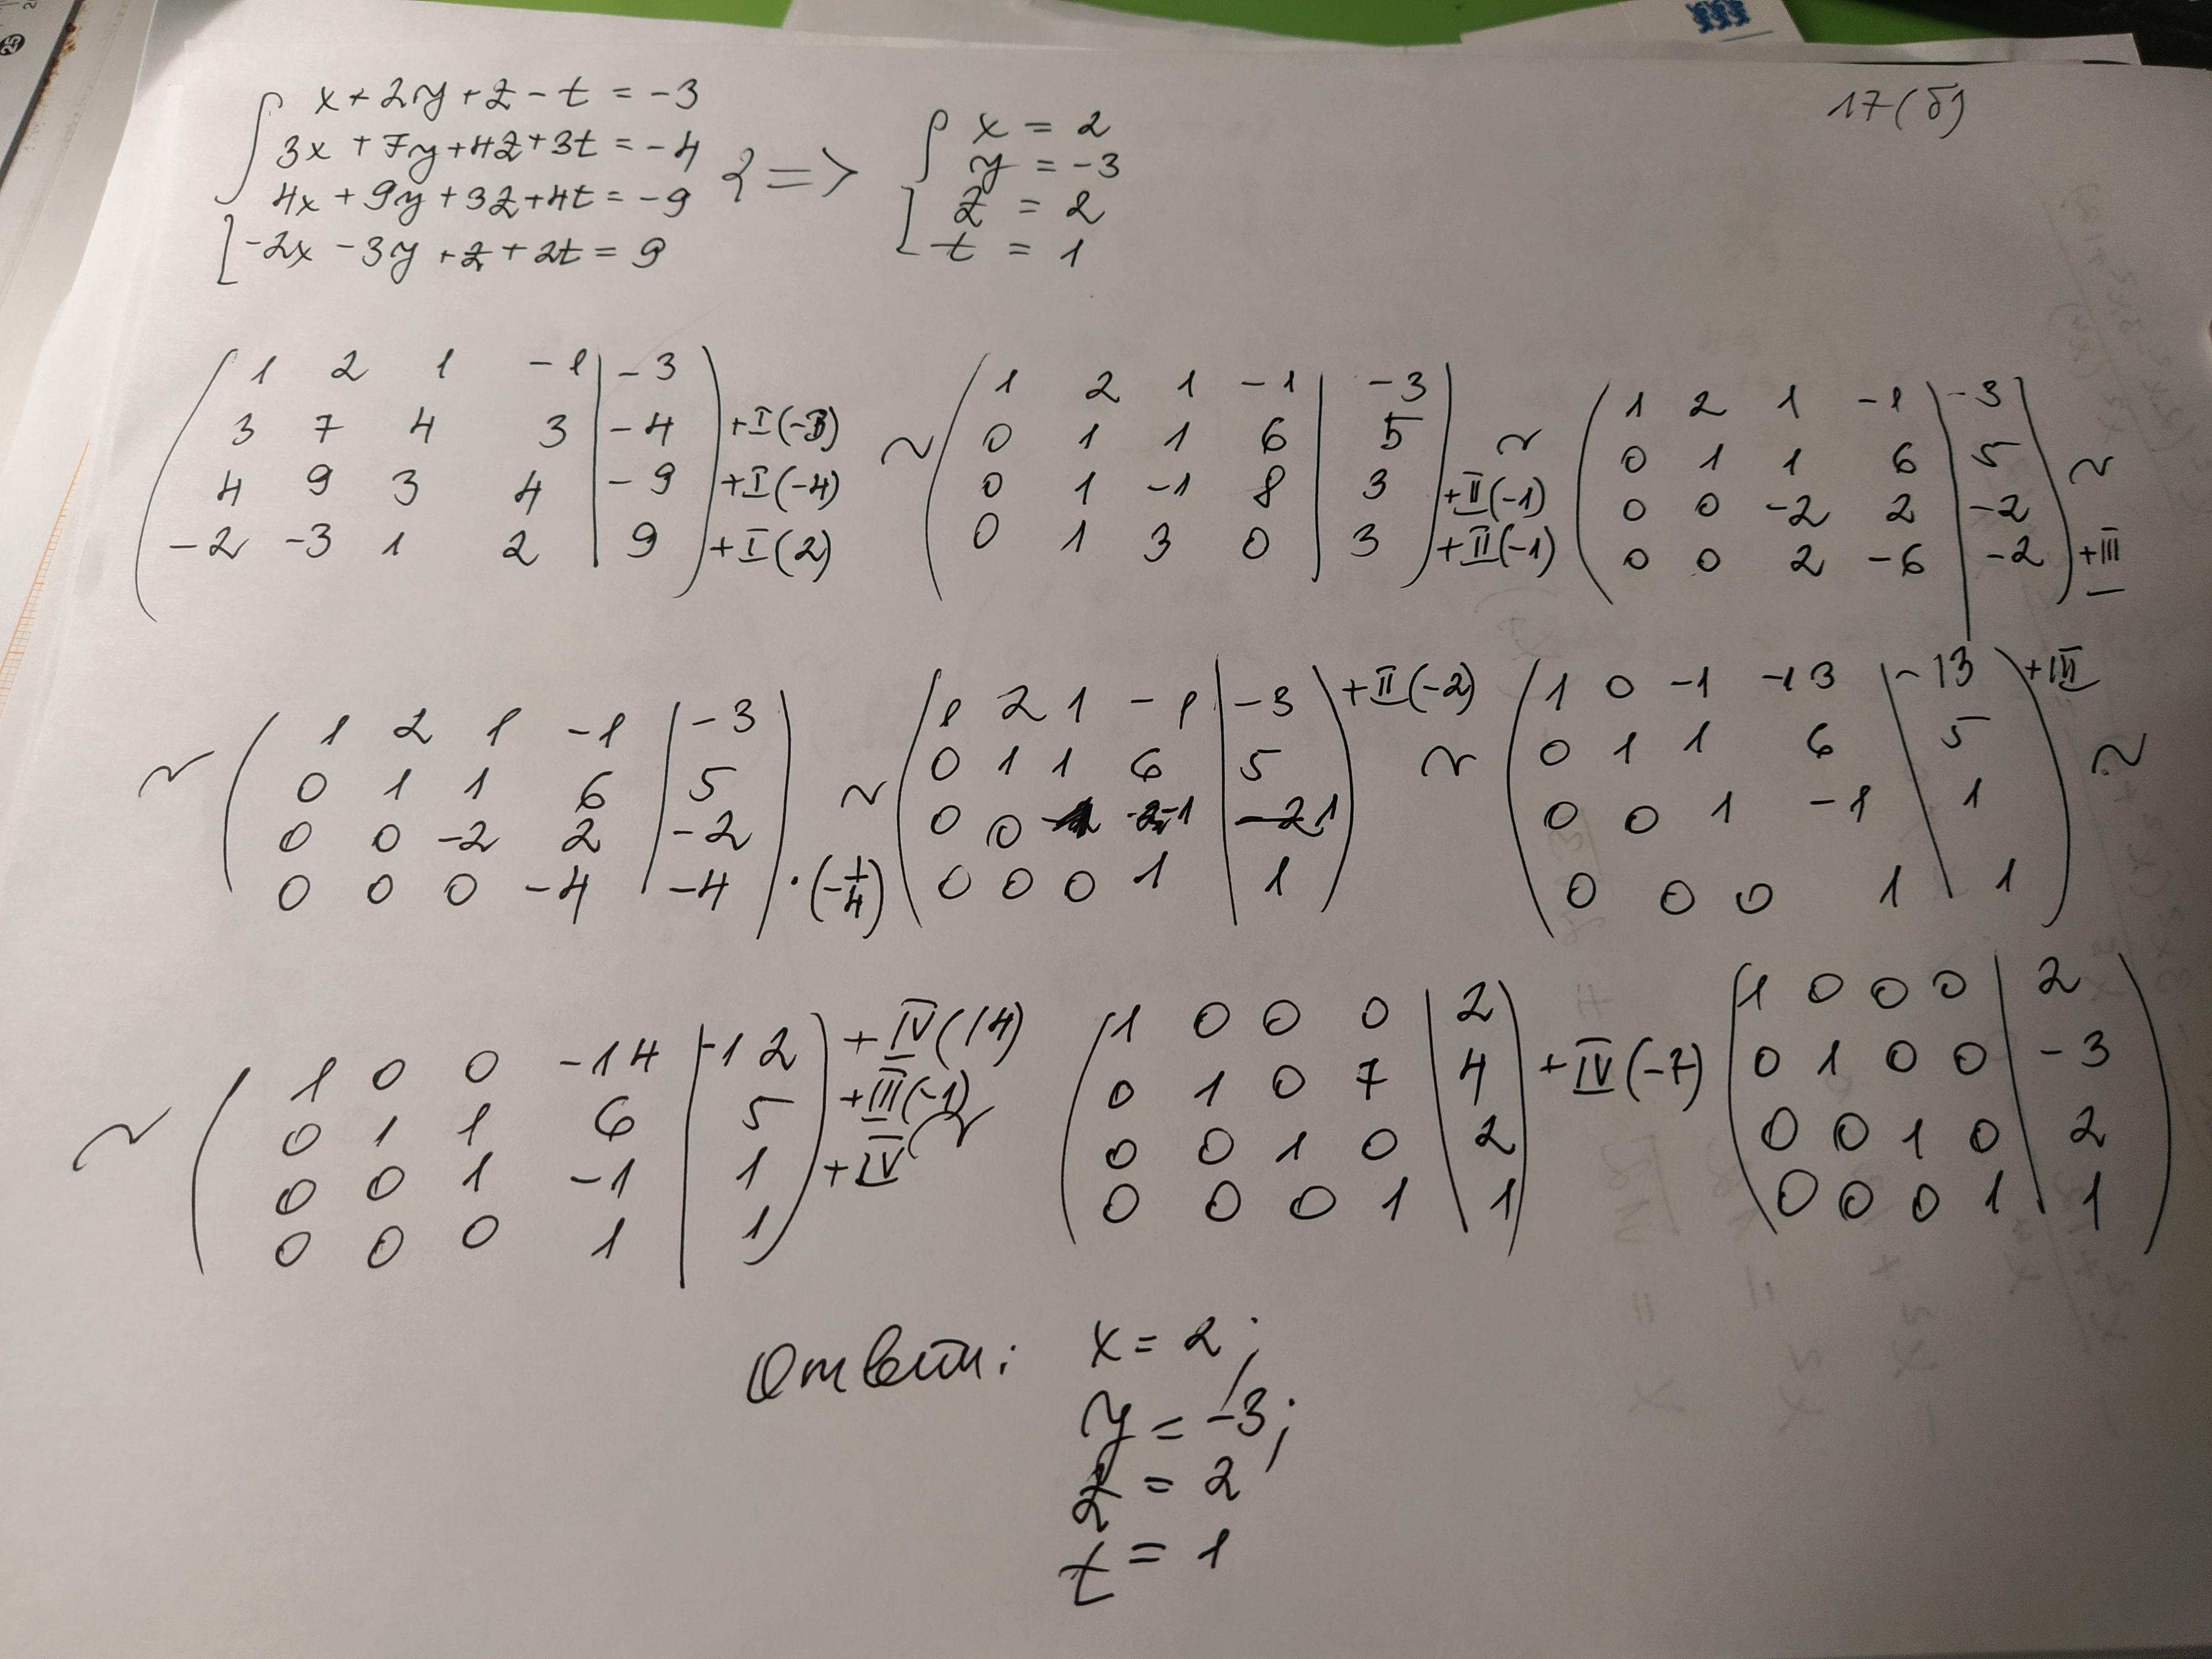 17(б)
x + 2y + z - t = -3
3x + 7y + 4z + 3t = -4
4x + 9y + 3z + 4t = -9
-2x - 3y + z + 2t = 9
=>
x = 2
y = -3
z = 2
t = 1
1 2 1 -1 | -3
3 7 4 3 | -4 +I(-3)
4 9 3 4 | -9 +I(-4)
-2 -3 1 2 | 9 +I(2)
~
1 2 1 -1 | -3
0 1 1 6 | 5
0 1 -1 8 | 3 +II(-1)
0 1 3 0 | 3 +II(-1)
~
1 2 1 -1 | -3
0 1 1 6 | 5
0 0 -2 2 | -2
0 0 2 -6 | -2 +III
~
~
1 2 1 -1 | -3
0 1 1 6 | 5
0 0 -2 2 | -2
0 0 0 -4 | -4 ·(-1/4)
~
1 2 1 -1 | -3 +II(-2)
0 1 1 6 | 5
0 0 -1 | 1
0 0 0 1 | 1
~
1 0 -1 -13 | -13 +III
0 1 1 6 | 5
0 0 1 -1 | 1
0 0 0 1 | 1
~
~
1 0 0 -14 | -12 +IV(14)
0 1 1 6 | 5 +III(-1)
0 0 1 -1 | 1 +IV
0 0 0 1 | 1
~
1 0 0 0 | 2
0 1 0 7 | 4 +IV(-7)
0 0 1 0 | 2
0 0 0 1 | 1
1 0 0 0 | 2
0 1 0 0 | -3
0 0 1 0 | 2
0 0 0 1 | 1
Ответ: x = 2;
y = -3;
z = 2
t = 1